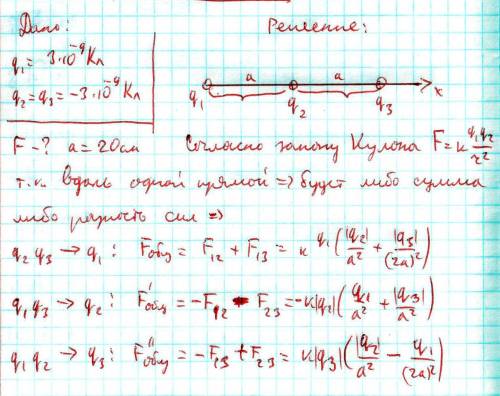 Дано: Решение:
q₁ = 3·10⁻⁹ Кл
q₂ = q₃ = −3·10⁻⁹ Кл
a a
q₁ q₂ q₃ x
F - ? a = 20см Согласно закону Кулона F = k q₁q₂/r²
т.к. вдоль одной прямой => будет либо сумма
либо разность сил =>
q₂ q₃ → q₁: Fобщ = F₁₂ + F₁₃ = k q₁(|q₂|/a² + |q₃|/(2a)²)
q₁ q₃ → q₂: F'общ = −F₁₂ − F₂₃ = −k|q₂|(q₁/a² + |q₃|/a²)
q₁ q₂ → q₃: F''общ = −F₁₃ + F₂₃ = k|q₃|(|q₂|/a² − q₁/(2a)²)